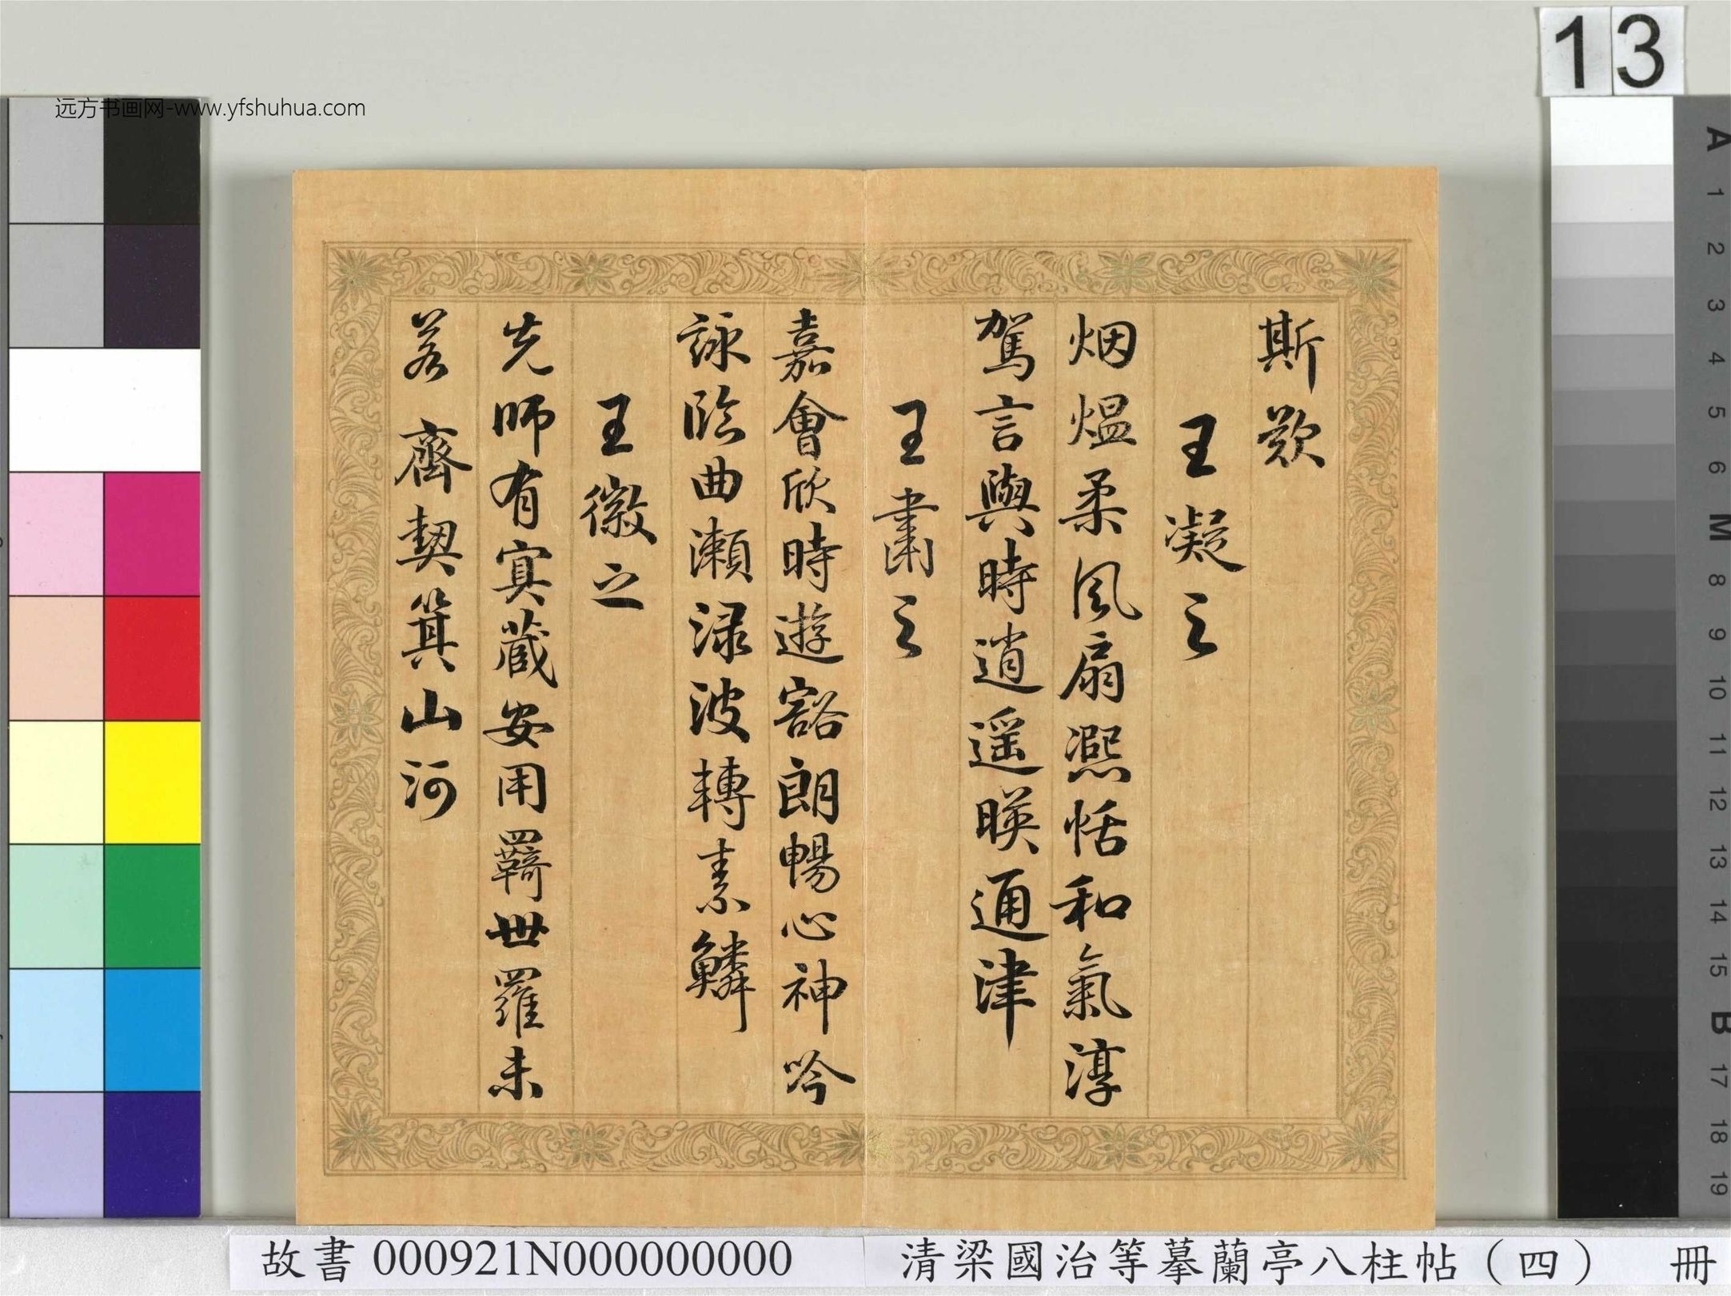 13
远方书画网-www.yfshuhua.com
斯歎
王凝之
烟煴柔風扇熈恬和氣淳
駕言興時逍遥暎通津
王肅之
嘉會欣時遊豁朗暢心神吟
詠臨曲瀨渌波轉素鱗
王徽之
先師有㝠藏安用羈世羅未
若齊契箕山河
A
1
2
3
4
5
6
M
8
9
10
11
12
13
14
15
B
17
18
19
故書 000921N000000000
清梁國治等摹蘭亭八柱帖(四) 冊